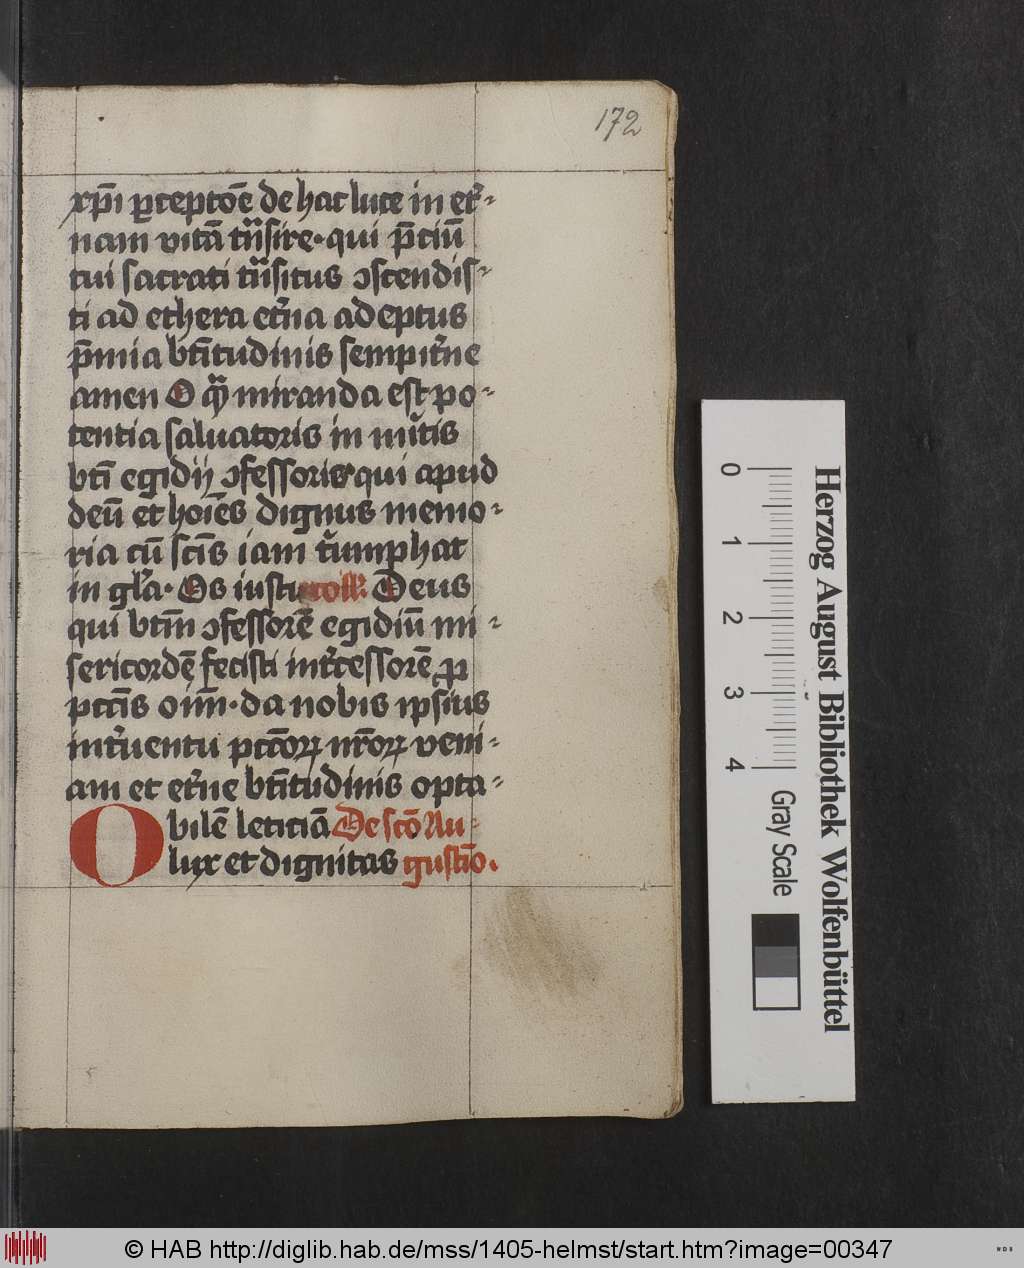 172
xp̄i p̱ceptōe de hac luce in et᷑-
nam vitā tᷓnsire· qui p̄ciū
tui sacrati tᷓnsitus ꝯscendis-
ti ad ethera et᷑na adeptus
p̄mia bt̄itudinis sempit᷑ne
amen O qᷓ miranda est po-
tentia saluatoris in mi᷑tis
bt̄i egidij ꝯfessoris qui apud
deū et hoīes dignus memo-
ria cū sc̄is iam t᷑umphat
in gl᷑a· Os iusti coll᷑ Deus
qui bt̄m ꝯfessorē egidiū mi-
sericordē fecisti int᷑cessorē ꝓ
pctīs oīm· da nobis ipsius
int᷑uentu pctōꝝ nr̄oꝝ veni-
am et et᷑ne bt̄itudinis opta-
bilē leticiā De scō Au-
O lux et dignitas gustīo.
Herzog August Bibliothek Wolfenbüttel
0 1 2 3 4
Gray Scale
© HAB http://diglib.hab.de/mss/1405-helmst/start.htm?image=00347